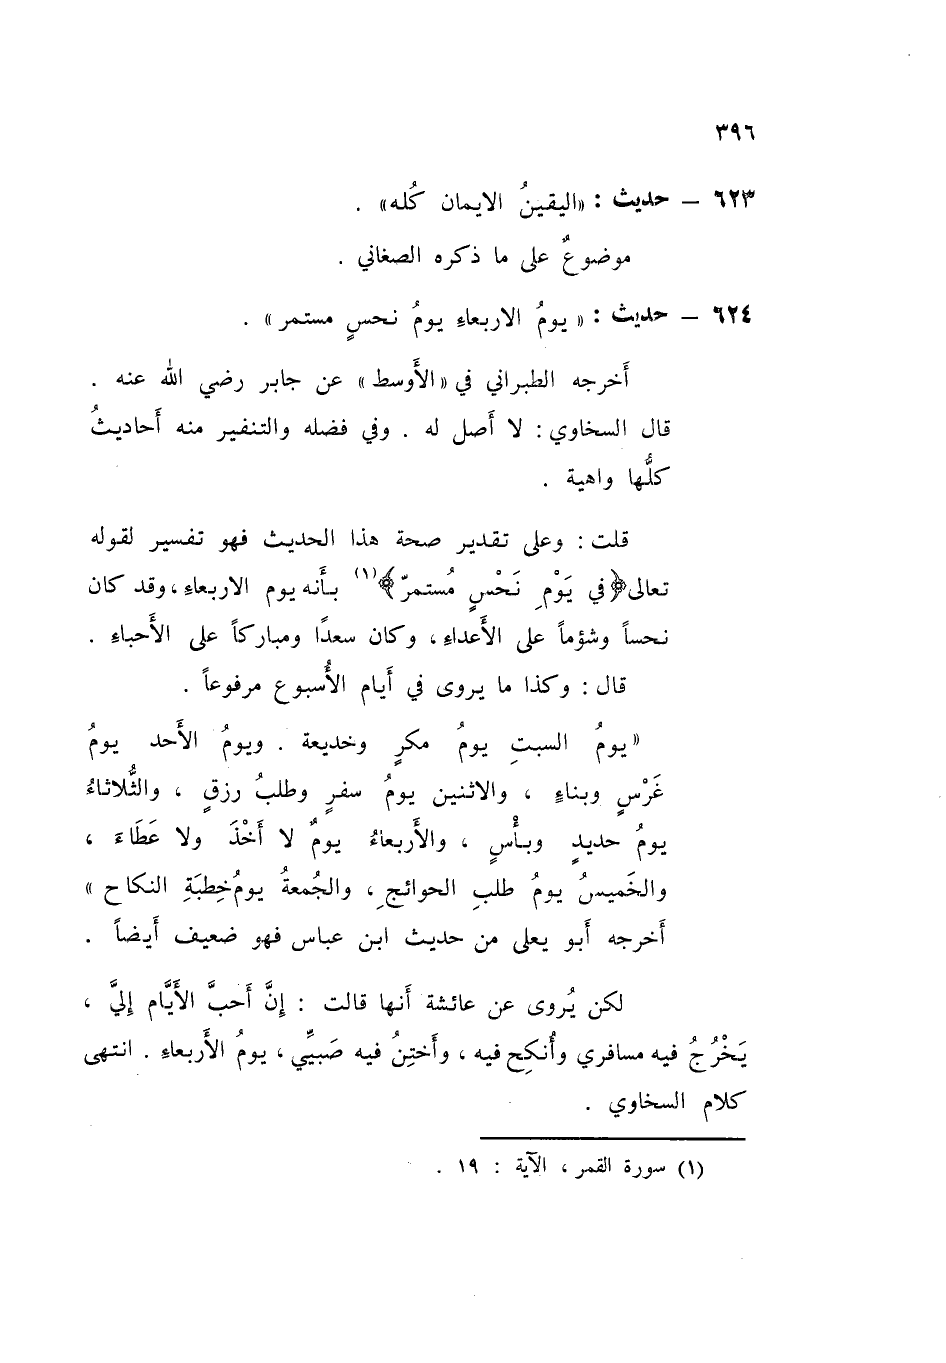 ٣٩٦
٦٢٣ – حديث : «اليقينُ الايمان كُله» .
موضوعٌ على ما ذكره الصغاني .
٦٢٤ – حديث : « يومُ الاربعاءِ يومُ نحسٍ مستمر » .
أَخرجه الطبراني في « الأَوسط » عن جابر رضي الله عنه .
قال السخاوي : لا أَصل له . وفي فضله والتنفير منه أَحاديثُ
كلُّها واهية .
قلت : وعلى تقدير صحة هذا الحديث فهو تفسير لقوله
تعالى ﴿في يَوْمِ نَحْسٍ مُستمرّ﴾(١) بأَنه يوم الاربعاء ، وقد كان
نحساً وشؤماً على الأَعداء ، وكان سعدًا ومباركاً على الأَحباء .
قال : وكذا ما يروى في أَيام الأُسبوع مرفوعاً .
« يومُ السبتِ يومُ مكرٍ وخديعة . ويومُ الأَحد يومُ
غَرْسٍ وبناءٍ ، والاثنين يومُ سفرٍ وطلبُ رزقٍ ، والثُّلاثاءُ
يومُ حديدٍ وبأْسٍ ، والأَربعاءُ يومٌ لا أَخْذَ ولا عَطَاءَ ،
والخَميسُ يومُ طلبِ الحوائجِ ، والجُمعةُ يومُ خِطبَةِ النكاح »
أَخرجه أَبو يعلى من حديث ابن عباس فهو ضعيف أَيضاً .
لكن يُروى عن عائشة أَنها قالت : إِنَّ أَحبَّ الأَيَّام إِليَّ ،
يَخْرُجُ فيه مسافري وأُنكِح فيه ، وأَختِنُ فيه صَبيِّي ، يومُ الأَربعاءِ . انتهى
كلام السخاوي .
(١) سورة القمر ، الآية : ١٩ .